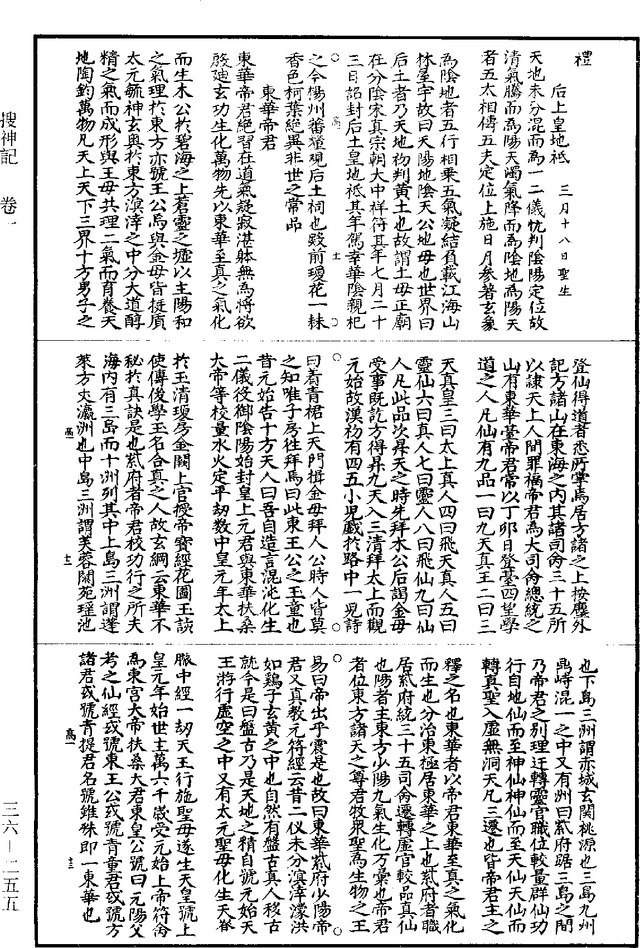 禮
后上皇地祇 三月十八日聖生
天地未分混而爲一二儀忱判陰陽定位故
清氣騰而爲陽天濁氣降而爲陰地爲陽天
者五太相傳五天定位上施日月參著玄象
爲陰地者五行相乗五氣凝結負載江海山
林屋宇故曰天陽地陰天公地母也世界曰
后土者乃天地初判黄土也故謂土母正廟
在分陰宋真宗朝大中祥符其年七月二十
三日詔封后土皇地祇其年駕幸華陰親祀
之今揚州蕃釐觀后土祠也殿前瓊花一株
香色柯葉絶異非世之常品
東華帝君
東華帝君絶習在道氣凝寂湛躰無爲將欲
啓廸玄功生化萬物先以東華至真之氣化
而生木公於碧海之上蒼靈之墟以主陽和
之氣理於東方亦號王公焉與金母皆挺質
太元毓神玄奧於東方溟涬之中分大道醇
精之氣而成形與王母共理二氣而育養天
地陶鈞萬物凡天上天下三界十方男子之
登仙得道者悉所掌焉居方諸之上按塵外
記方諸山在東海之内其諸司命三十五所
以隷天上人間罪福帝君爲大司命總統之
山有東華臺帝君常以丁卯日登臺四望學
道之人凡仙有九品一曰九天真王二曰三
天真皇三曰太上真人四曰飛天真人五曰
靈仙六曰真人七曰靈人八曰飛仙九曰仙
人凡此品次昇天之時先拜木公后謁金母
受事既訖方得昇九天入三清拜太上而觀
元始故漢初有四五小兒戲於路中一兒詩
曰着青裙上天門揖金母拜木公時人皆莫
之知唯子房徃拜焉曰此東王公之玉童也
昔元始告十方天人曰吾自造言混沌化生
二儀役御陰陽始封皇上元君與東華扶桑
大帝等校量水火定平刼數中皇元年太上
於玉清瓊房金闕上宫授帝寳經花圖玉訣
使傳後學玉名合真之人故玄綱云東華不
秘於真訣是也紫府者帝君校功行之所夫
海内有三島而十洲列其中上島三洲謂蓬
萊方丈瀛洲也中島三洲謂芙蓉閬苑瑶池
也下島三洲謂赤城玄關桃源也三島九洲
鼎峙混一之中又有洲曰紫府踞三島之間
乃帝君之别理迁轉靈官職位較量群仙功
行自地仙而至神仙神仙而至天仙天仙而
轉真聖入虛無洞天凡三遷也皆帝君主之
釋之名也東華者以帝君東華至真之氣化
而生也分治東極居東華之上也紫府者職
居紫府統三十五司命遷轉虛官較品真仙
也陽者主東方少陽九氣生化万彙也帝君
者位東方諸天之尊君牧衆聖爲生物之王
易曰帝出乎震是也故曰東華紫府少陽帝
君又真教元符經云昔二仪未分溟涬濛洪
如鷄子玄黄之中也自然有盤古真人移古
就今是曰盤古乃是天地之精自號元始天
王將行虛空之中又有太元聖母化生天脊
脲中經一刼天王行施聖母遂生天皇號上
皇元年始世主萬六千歲受元始上帝符命
爲東宫大帝扶桑大君東皇公號曰元陽父
考之仙經或號東王公或號青童君或號方
諸君或號青提君名號雖殊即一東華也
搜神記 卷一
三六－二五五